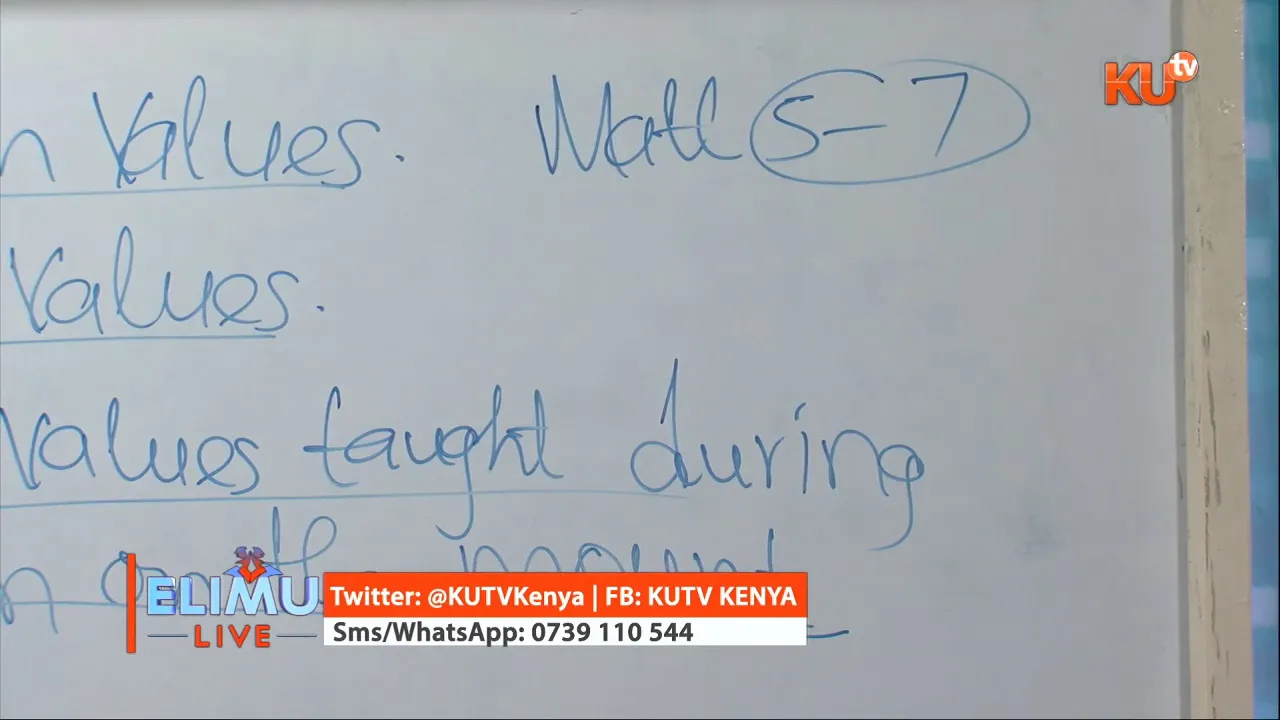 n Values. Matt 5-7
KU tv
Values.
Values taught during
n on the mount
ELIMU
LIVE
Twitter: @KUTVKenya | FB: KUTV KENYA
Sms/WhatsApp: 0739 110 544